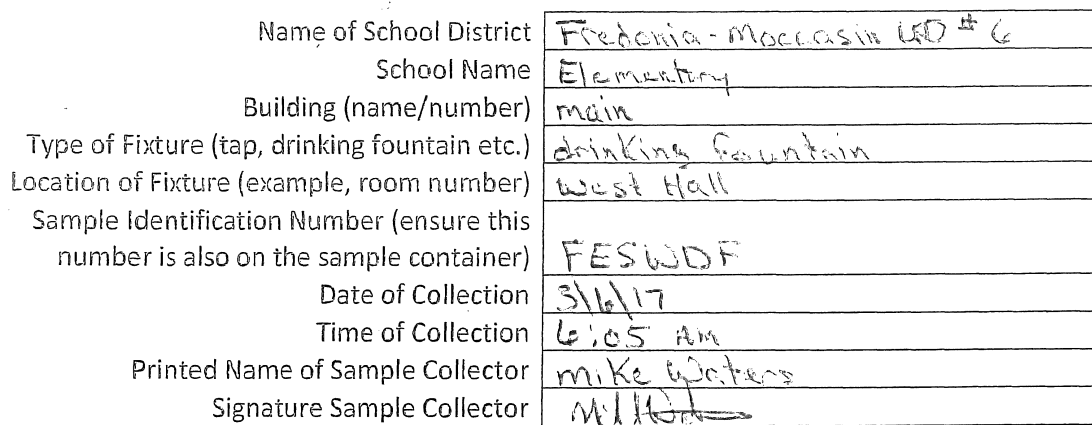 Name of School District Fredonia-Moccasin UD # 6
School Name Elementary
Building (name/number) main
Type of Fixture (tap, drinking fountain etc.) drinking fountain
Location of Fixture (example, room number) West Hall
Sample Identification Number (ensure this
number is also on the sample container) FESWDF
Date of Collection 3\6\17
Time of Collection 6:05 AM
Printed Name of Sample Collector mike Waters
Signature Sample Collector